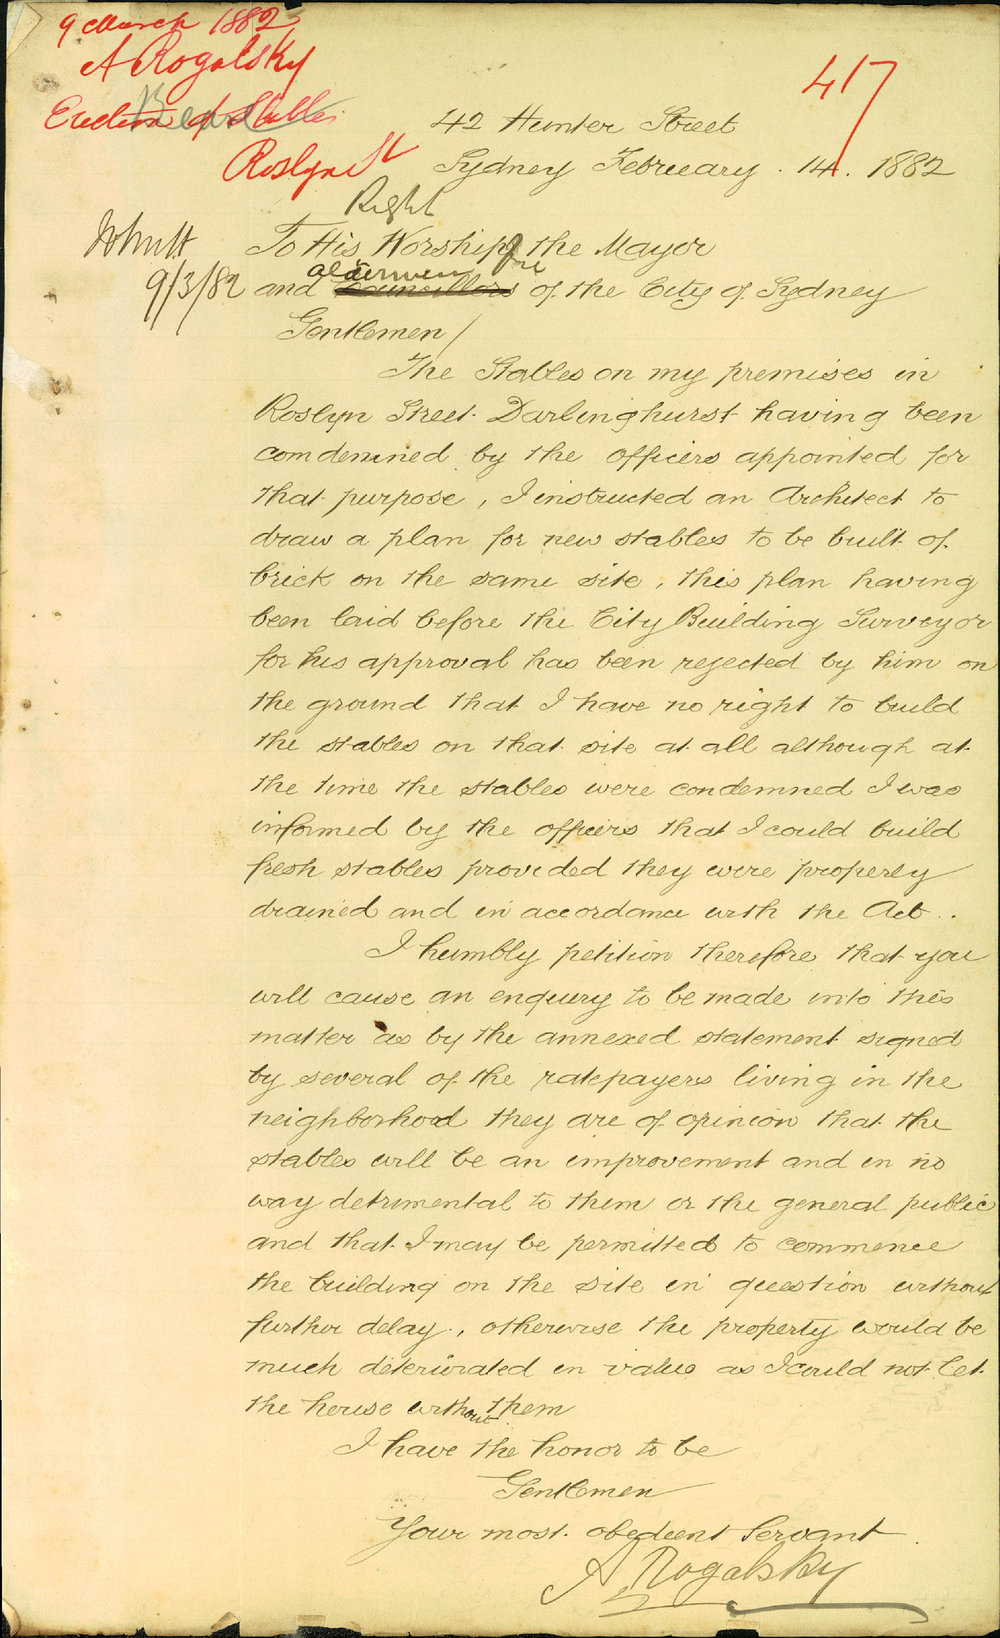 9 March 1882
A Rogalsky
Erection of Stables
Roslyn St
417
42 Hunter Street
Sydney February . 14. 1882
Right
9/3/82
To His Worship the Mayor
aldermen
and Councillors of the City of Sydney
Gentlemen /
The Stables on my premises in
Roslyn Street Darlinghurst having been
comdemned by the officers appointed for
that purpose, I instructed an Architect to
draw a plan for new stables to be built of
brick on the same site, this plan having
been laid before the City Building Surveyor
for his approval has been rejected by him on
the ground that I have no right to build
the stables on that site at all although at
the time the stables were condemned I was
informed by the officers that I could build
fresh stables provided they were properly
drained and in accordance with the Act..
I humbly petition therefore that you
will cause an enquiry to be made into this
matter as by the annexed statement signed
by several of the ratepayers living in the
neighborhood they are of opinion that the
stables will be an improvement and in no
way detrimental to them or the general public
and that I may be permitted to commence
the building on the site in question without
further delay, otherwise the property would be
much deteriorated in value as I could not let
the house without them
I have the honor to be
Gentlemen
Your most obedient Servant
A Rogalsky